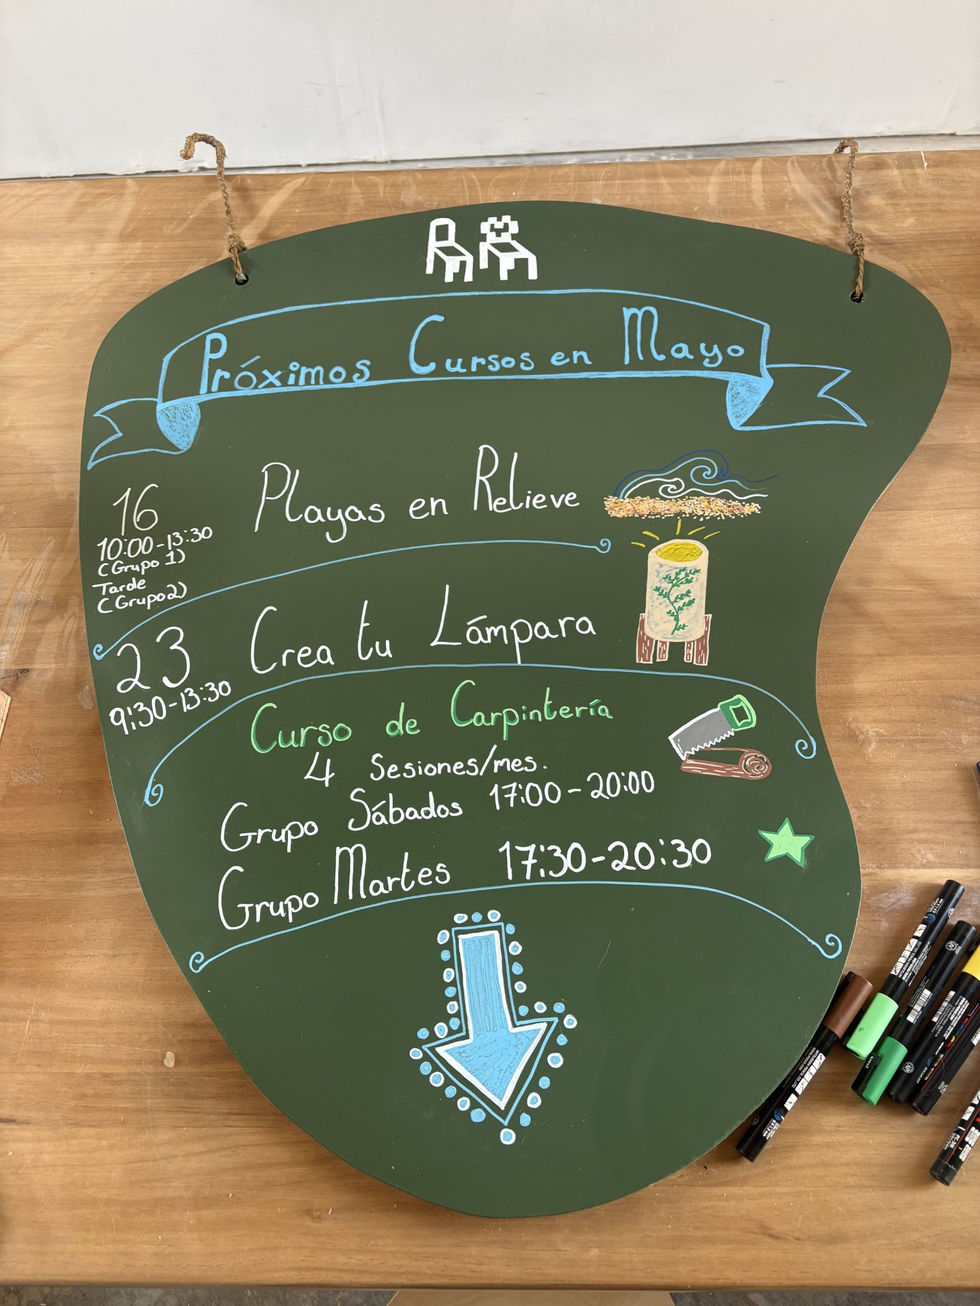 Próximos Cursos en Mayo
16
10:00-13:30
(Grupo 1)
Tarde
(Grupo2)
Playas en Relieve
23
9:30-13:30
Crea tu Lámpara
Curso de Carpintería
4 Sesiones/mes.
Grupo Sábados 17:00-20:00
Grupo Martes 17:30-20:30